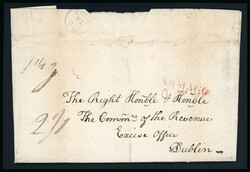 ARMAGH
The Right Honble & Honble
The Commrs of the Revenue
Excise Office
Dublin